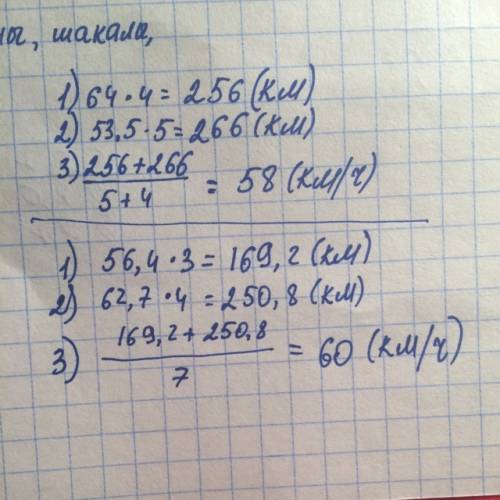 шакала,
1) 64 · 4 = 256 (км)
2) 53,5 · 5 = 266 (км)
3) (256+266)/(5+4) = 58 (км/ч)
1) 56,4 · 3 = 169,2 (км)
2) 62,7 · 4 = 250,8 (км)
3) (169,2 + 250,8)/7 = 60 (км/ч)